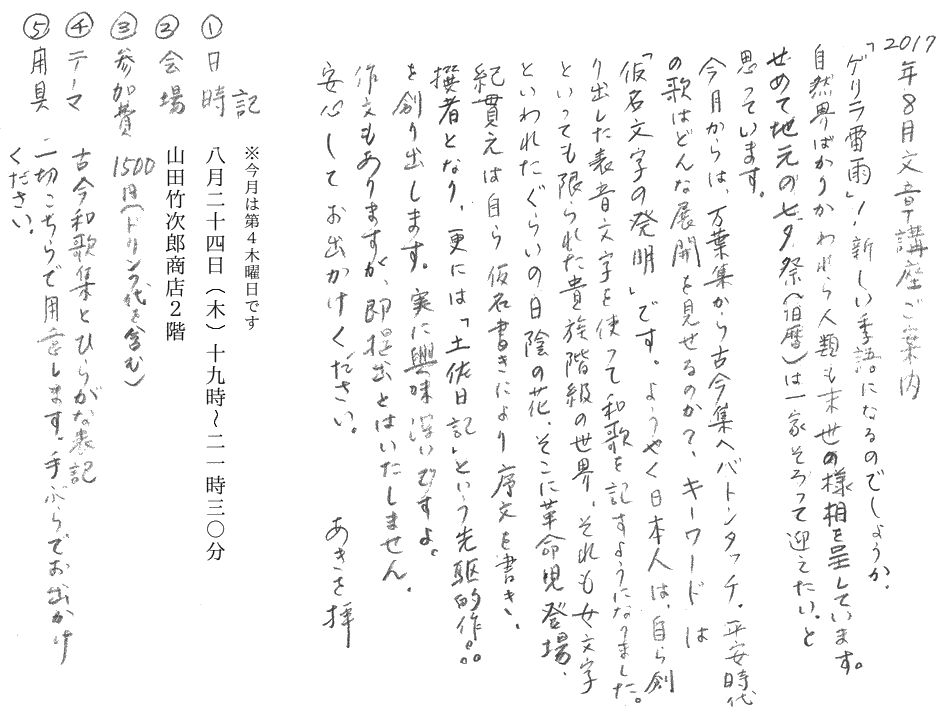 2017年8月文章講座ご案内
「ゲリラ雷雨」!新しい季語。になるのでしょうか。
自然界ばかりかわれら人類も末世の様相を呈しています。
せめて地元の七夕祭(旧暦)は一家そろって迎えたい、と
思っています。
今月からは、万葉集から古今集へバトンタッチ。平安時代
の歌はどんな展開を見せるのか?、キーワードは
「仮名文字の発明」です。ようやく日本人は、自ら創
り出した表音文字を使って和歌を記すようになりました。
といっても限られた貴族階級の世界。それも女文字
といわれたぐらいの日陰の花。そこに革命児登場、
紀貫之は自ら仮名書きにより序文を書き、
撰者となり、更には「土佐日記」という先駆的作。。
を創り出します。実に興味深いですよ。
作文もありますが、即提出とはいたしません。
安心してお出かけください。
あきを拝
記
※今月は第4木曜日です
①日時 八月二十四日(木)十九時~二一時三〇分
②会場 山田竹次郎商店2階
③参加費 1500円(ドリンク代を含む)
④テーマ 古今和歌集とひらがな表記
⑤用具 一切こちらで用意します。手ぶらでお出かけ
ください。